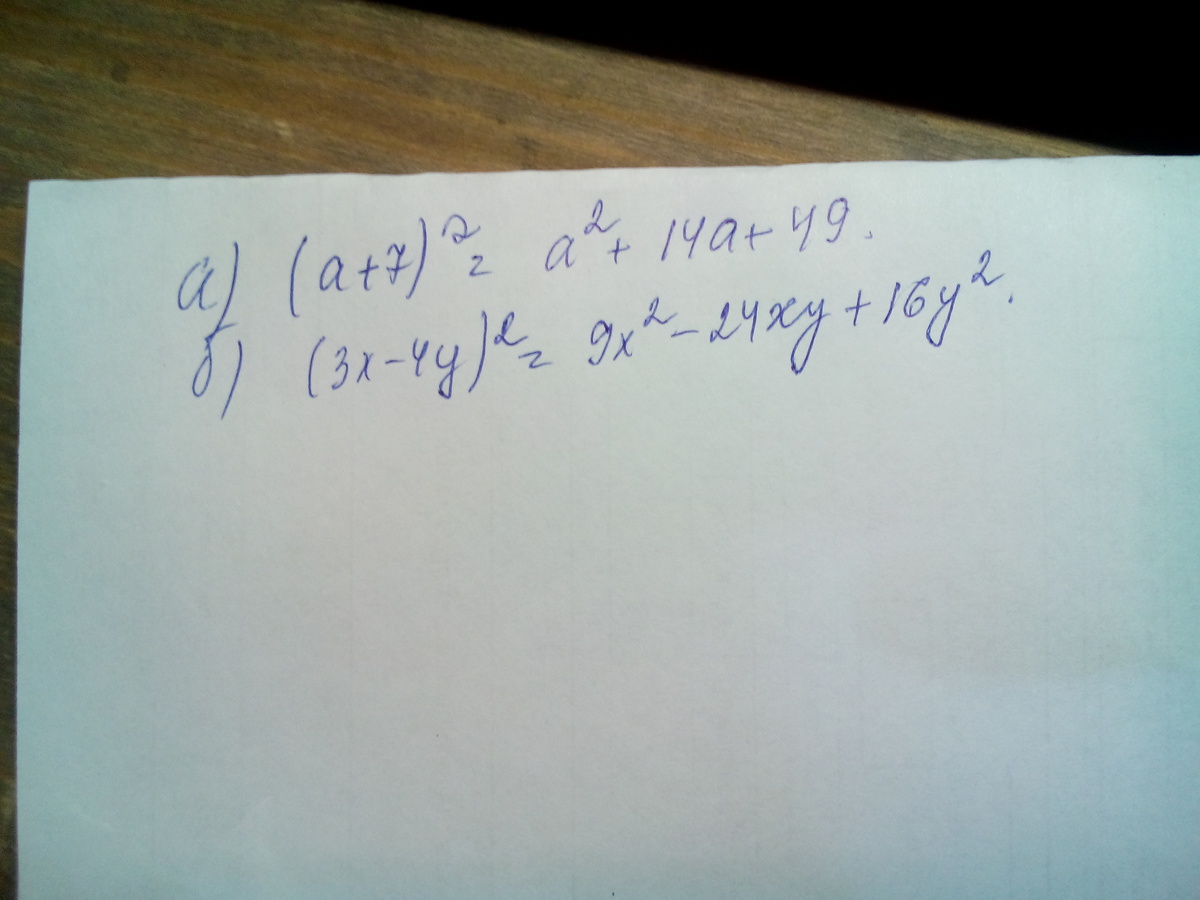 а) (a+7)² = a² + 14a + 49.
б) (3x-4y)² = 9x² - 24xy + 16y².